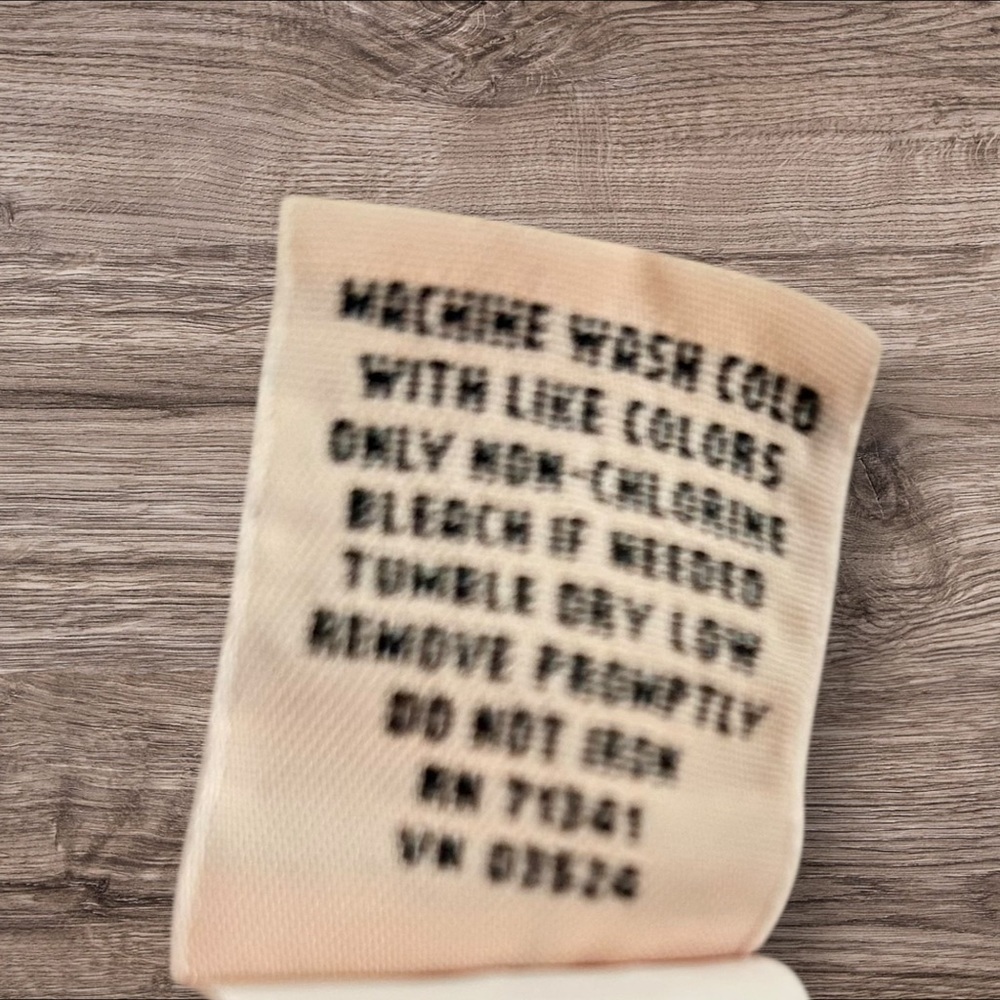 MACHINE WASH COLD
WITH LIKE COLORS
ONLY NON-CHLORINE
BLEACH IF NEEDED
TUMBLE DRY LOW
REMOVE PROMPTLY
DO NOT IRON
RN 71341
VN 03524